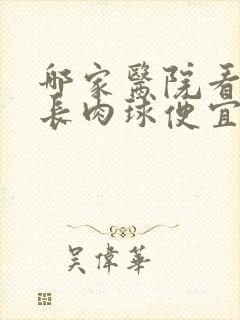 哪家醫院看
長肉球便宜
吴偉華